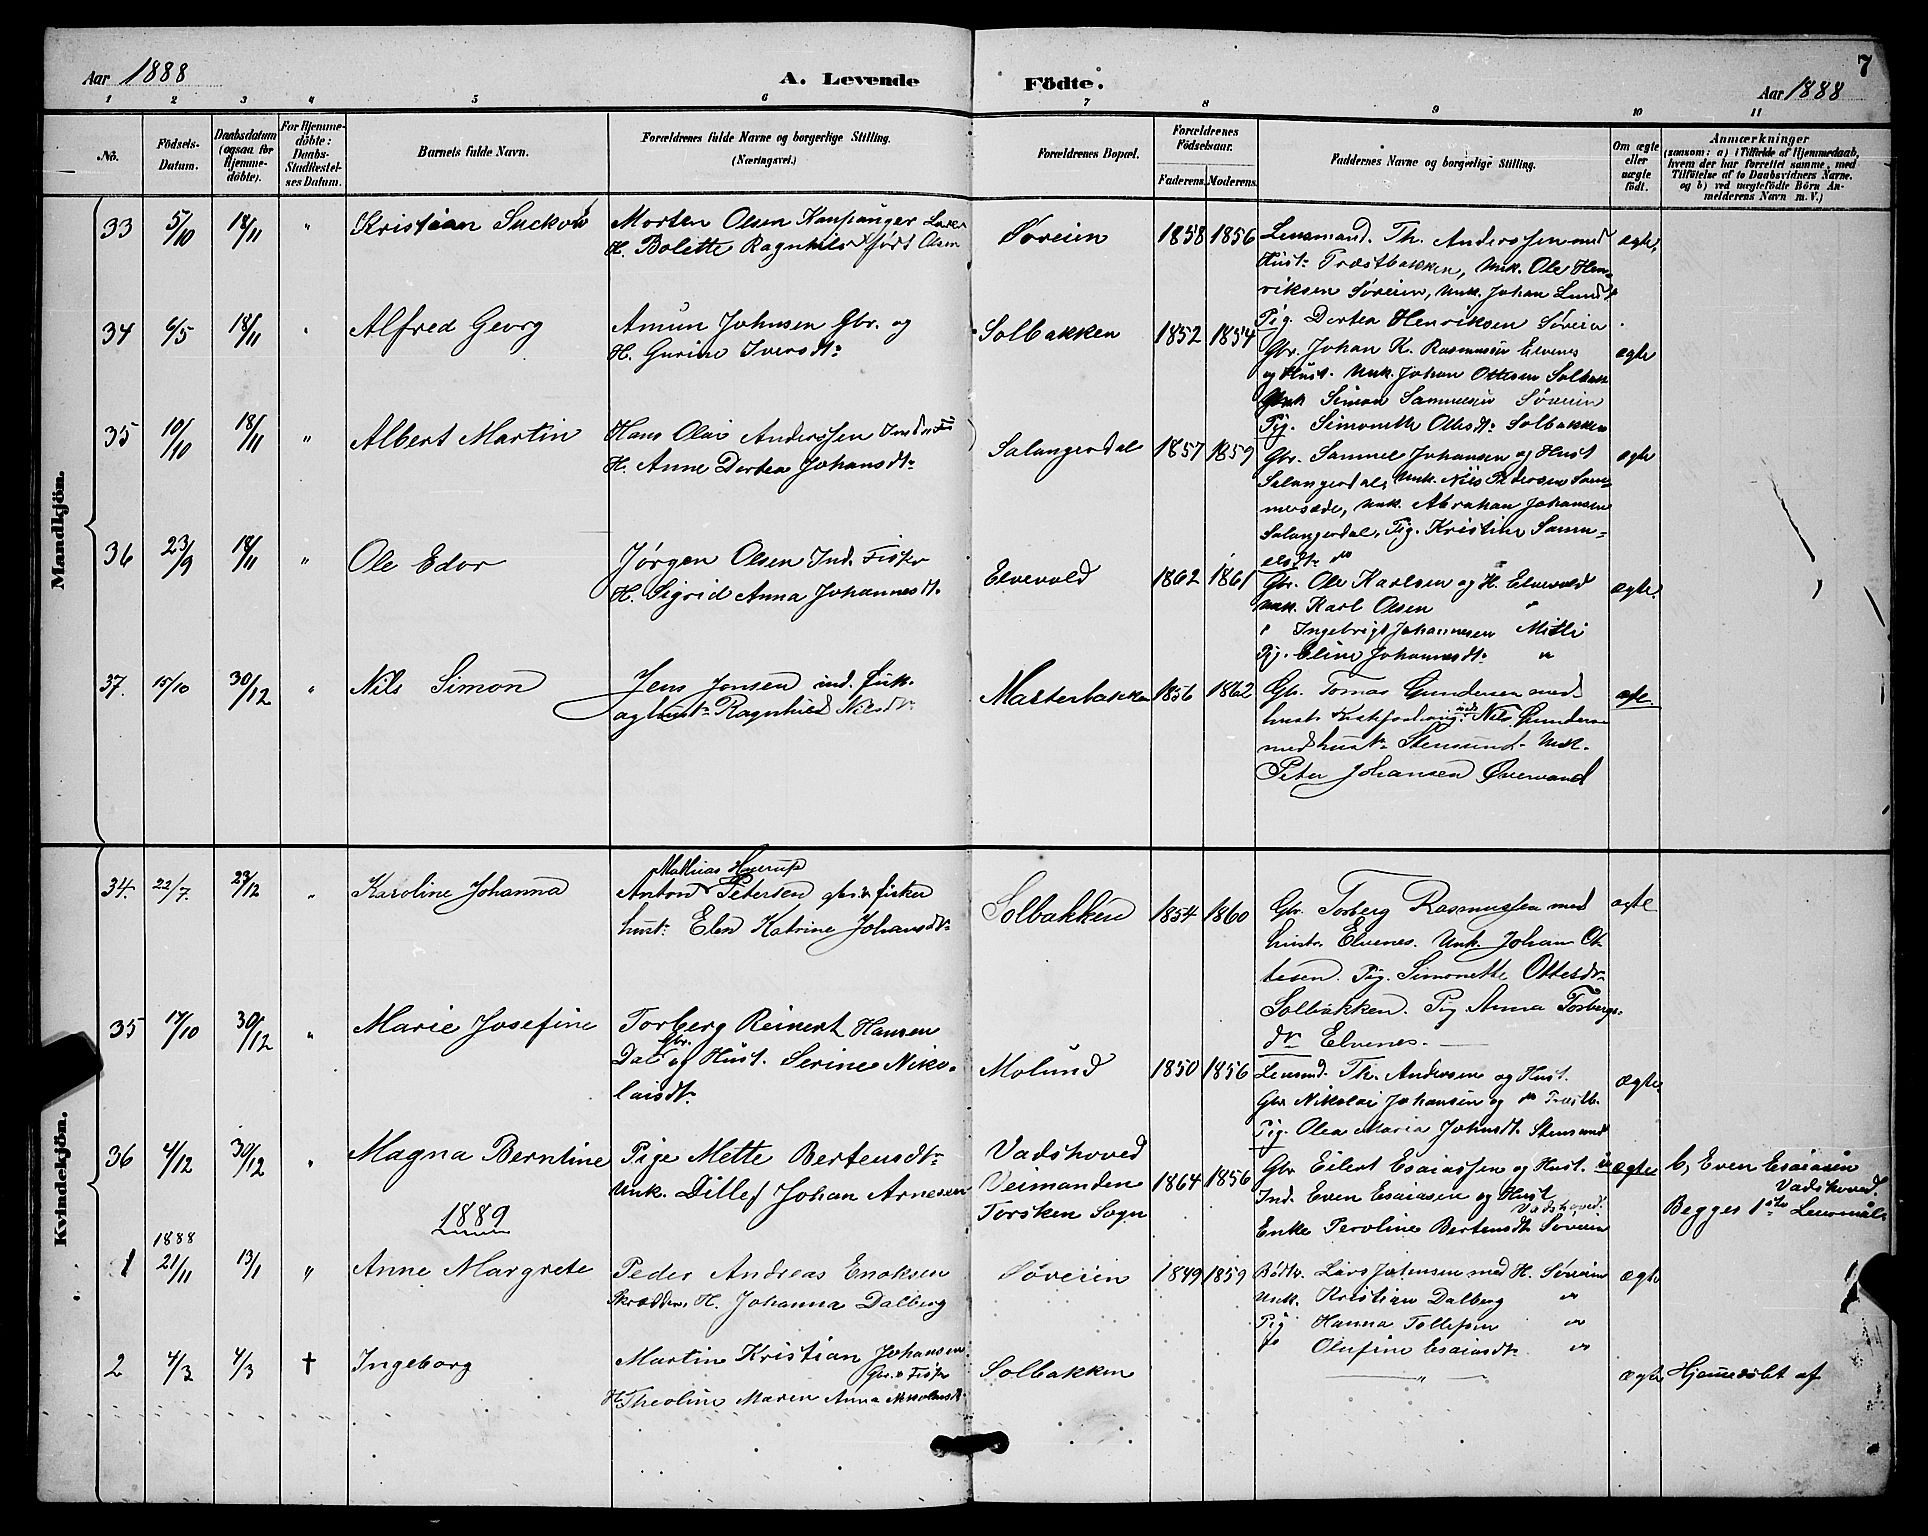 Aar 1888
A. Levende Födte.
Aar 1888
7
1 2 3 4 5 6 7 8 9 10 11
No.
Födsels-Datum.
Daabsdatum (ogsaa for Hjemme-döbte).
For Hjemme-döbte: Daabs-Stadfæstel-ses Datum.
Barnets fulde Navn.
Forældrenes fulde Navne og borgerlige Stilling. (Næringsvei.)
Forældrenes Bopæl.
Forældrenes Födselsaar.
Faderens. Moderens.
Faddernes Navne og borgerlige Stilling.
Om ægte eller uægte födt.
Anmærkninger
(saasom: a) i Tilfælde af Hjemmedaab,
hvem der har forrettet samme, med
Tilföielse af to Daabsvidners Navne.
og b) ved uægtefödte Börn An-
melderens Navn m. V.)
Mandkjön.
33 5/10 18/11 " Kristian Suckow
Morten Olsen Kaupanger
H. Bolette Ragnhild født Olsen
Søreien 1858 1856
Lensmand. Th. Anderssen med
Hust. Træstbakken, Unk. Ole Hen-
riksen Søreien, Unk. Johan Lund
Pig. Dortea Henriksen Søreien
ægte.
34 6/5 18/11 " Alfred Georg
Amun Johnsen Gbr. og
H. Gurine Iversdtr
Solbakken 1852 1854
Gbr. Johan K. Rasmussen Elvenes
og Hust. Unk. Johan Ottesen Solbak
Unk Simon Samuelsen Søreien
Pig. Simonette Ottesdtr Solbakken
ægte
35 10/10 18/11 " Albert Martin
Hans Olai Anderssen Inds Fis
H. Anne Dortea Johansdtr
Salangerdal 1857 1859
Gbr. Samuel Johansen og Hust
Salangerdal, Unk. Nils Pedersen Som-
mersæde, Unk. Abraham Johansen
Salangerdal, Pig. Kristine Samu-
elsdtr do
ægte
36 23/9 18/11 " Ole Edor
Jørgen Olsen Ind. Fisker
H. Sigrid Anna Johannesdt.
Elvevold 1862 1861
Gbr. Ole Karlsen og H. Elvevold
Unk. Karl Olsen "
" Ingebrigt Johannesen Mitli
Pg. Eline Johannesdtr "
ægte.
37. 15/10 30/12 " Nils Simon
Jens Jonsen ind. fisk.
og hustr Ragnhild Nilsdtr
Masterbakken 1856 1862
Gbr. Tomas Gundersen med
hustr Nils Gunders
med hustr Stensund. Unk.
Peter Johansen Øvervand
ægte.
Kvindekjön.
34. 22/7. 23/12 " Karoline Johanna
Mathias Hagerup
Anton Petersen gbr. fisker
hust. Elen Katrine Johansdtr
Solbakken 1854 1860
Gbr. Torberg Rasmussen med
hustr. Elvenes. Unk. Johan Ot-
tesen. Pig. Simonette Ottesdtr
Solbakken. Pig Anna Torbergs-
dtr Elvenes.
ægte
35 17/10 30/12 " Marie Josefine
Torberg Reinert Hansen
Gbr.
Dal og Hust. Serine Niko-
laisdtr
Molund 1850 1856
Lensmd. Th. Andersen og Hust.
Gbr Nikolai Johansen og do Træstb.
Pig. Olea Maria Johnsdtr Stensund
Ægte.
36 4/12 30/12 " Magna Berntine
Pige Mette Bertensdtr
Unk. Ditlef Johan Arnesen
Vadshoved
Veimanden
Torsken Sogn
1864 1856
Gbr Eilert Esaiassen og Hust.
Ind. Even Esaiasen og Hust
Vadshoved.
Enke Peroline Bertensdtr Søreien
uægte
b, Even Esaiasen
Vadshoved.
Begges 1ste Leiermål
1889
1 1888 21/11 13/1 " Anne Margrete
Peder Andreas Enoksen
Skrædder H. Johanna Dalberg
Søreien 1849 1859
Bødtk. Lars Johnsen med H. Søreien
Unk. Kristian Dalberg "
Pig Hanna Tollefsen "
Olufine Esaiasdtr "
ægte
2 4/3 4/3 † Ingeborg
Martin Kristian Johansen
Gbr. & Fisker
H. Theoline Maren Anna
Solbakken
"
ægte Hjemmedøbt af